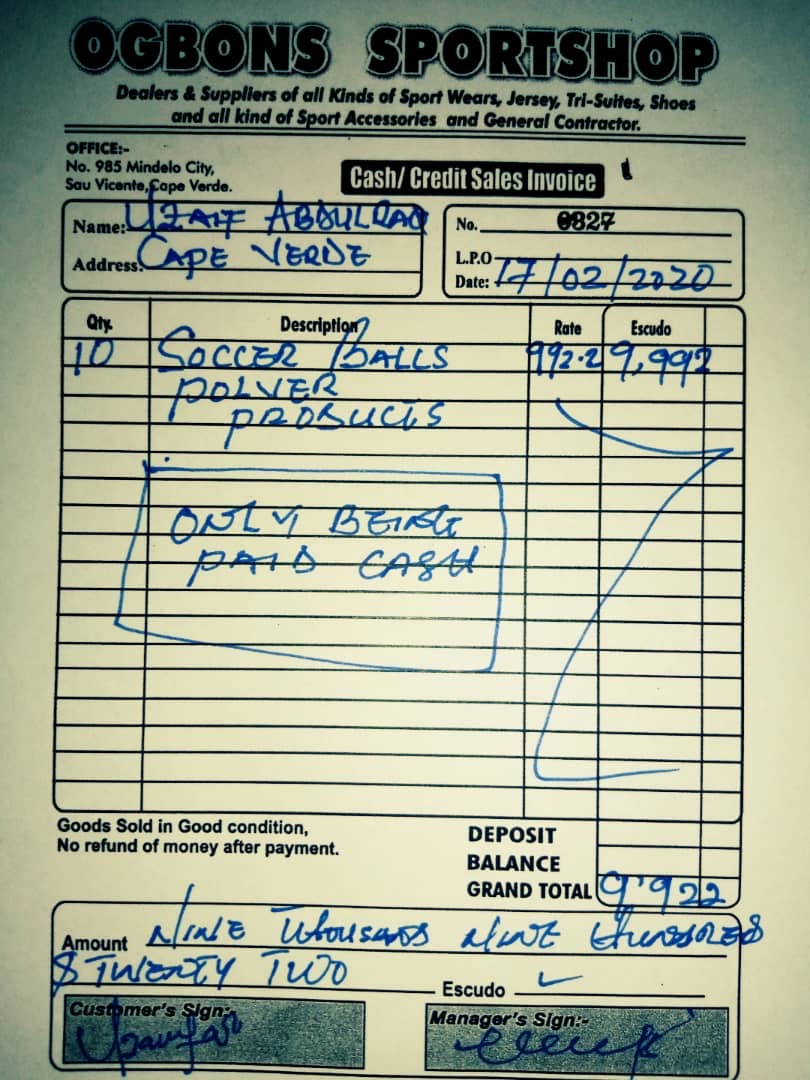 OGBONS SPORTSHOP
Dealers & Suppliers of all Kinds of Sport Wears, Jersey, Tri-Suites, Shoes
and all kind of Sport Accessories and General Contractor.
OFFICE:-
No. 985 Mindelo City,
Sau Vicente,Cape Verde.
Cash/ Credit Sales Invoice
Name: UZAIF ABDULRAO
Address: CAPE VERDE
No. 0327
L.P.O
Date: 17/02/2020
Qty. Description Rate Escudo
10 SOCCER BALLS 992.2 9,992
POLVER
PRODUCTS
ONLY BEING
PAID CASH
Goods Sold in Good condition,
No refund of money after payment.
DEPOSIT
BALANCE
GRAND TOTAL 9'922
Amount NINE THOUSANDS NINE HUNDRED
& TWENTY TWO
Escudo
Customer's Sign:-
Manager's Sign:-